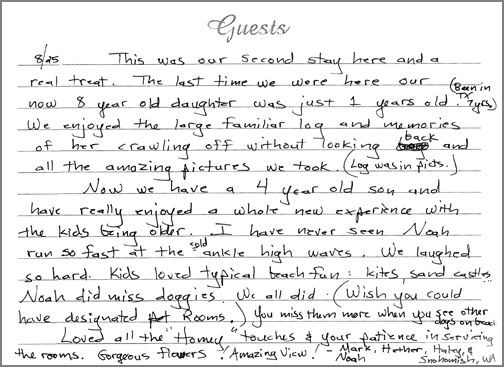 Guests
8/25 This was our second stay here and a
real treat. The last time we were here our
now 8 year old daughter was just 1 years old. (Been in TX 7yrs)
We enjoyed the large familiar log and memories
of her crawling off without looking back and
all the amazing pictures we took. (Log was in picts.)
Now we have a 4 year old son and
have really enjoyed a whole new experience with
the kids being older. I have never seen Noah
run so fast at the cold ankle high waves. We laughed
so hard. Kids loved typical beach fun: kites, sand castles...
Noah did miss doggies. We all did. (Wish you could
have designated pet Rooms.) You miss them more when you see other dogs on beach
Loved all the "Homey" touches & your patience in servicing
the rooms. Gorgeous flowers! Amazing View! - Mark, Hether, Haley, &
Noah Snohomish, WA